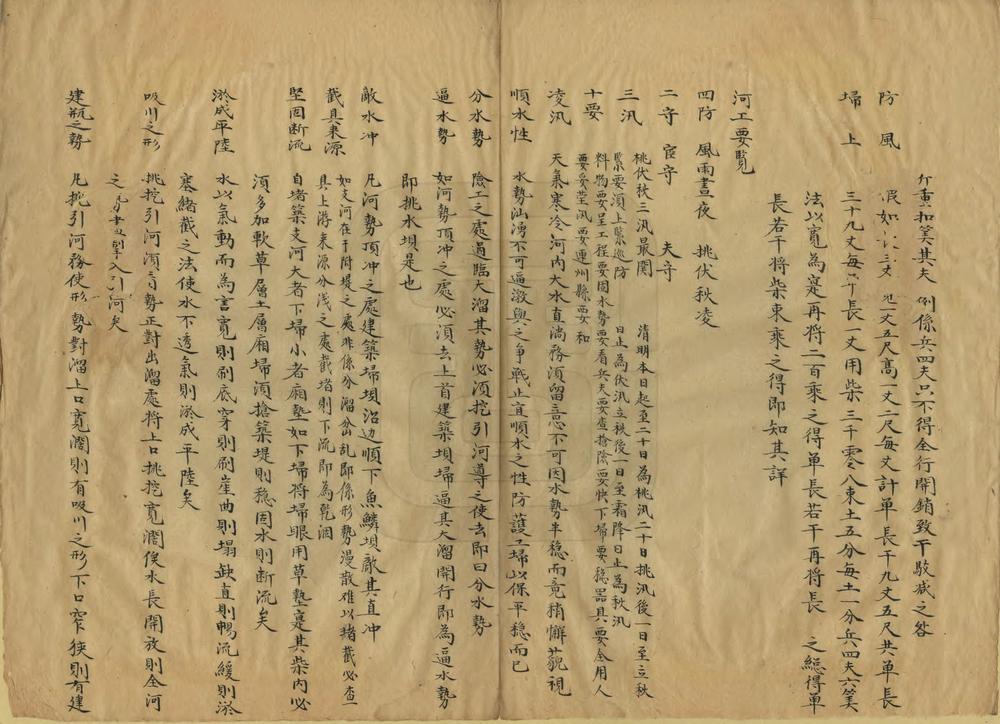 分重扣筭其夫 例係兵四夫六不得全行開銷致干駁减之咎
防風 假如 三丈 九丈五尺高一丈二尺每丈計單長十九丈五尺共單長
埽上 三十九丈每 長一丈用柴三千零八束土五分每土一分兵四夫六筭
法以寬為寔再將二百乘之得單長若干再將長 之緫得單
長若干將柴束乘之得即知其詳
河工要覧
四防 風雨晝夜 桃伏秋凌
二守 官守 夫守
三汛 桃伏秋三汛最関緊要須上緊巡防 清明本日起至二十日為桃汛二十日桃汛後一日至立秋日止為伏汛立秋後一日至霜降日止為秋汛
十要 料物要足工程要固水勢要看兵夫要查搶險要快下埽要穏器具要全用人要妥莹汛要連州縣要和
凌汛 天氣寒冷河内大水直淌務須留意不可因水勢丰穏而竟稍懈藐視
順水性 水勢汕湧不可逼激與之争戰止宜順水之性防護工埽以保平穏而已
分水勢 險工之處過臨大溜其勢必須挖引河導之使去即曰分水勢
逼水勢 如河勢頂冲之處必須去上首建築埧埽逼其大溜開行即為逼水勢
即挑水埧是也
敵水冲 凡河勢頂冲之處建築埽埧沿边順下魚鱗埧敵其直冲
截其来源 如支河在于附堤之處非係分溜分乱即係形勢漫散难以堵截必查其上游来源分浅之處截堵則下流即為乾涸
堅固断流 自堵築支河大者下埽小者廂墊如下埽将埽眼用草墊寔其柴内必
須多加軟草層土層廂埽須搶築堤則穏固水則断流矣
淤成平陸 水以氣動而為言寛則刷底穿則刷崖曲則塌缺直則暢流緩則淤
塞緒截之法使水不透氣則淤成平陸矣
吸川之形 挑挖引河須 勢正對出溜處将上口挑挖寛濶俟水長開放則全河
之 入引河矣
建瓴之勢 凡挖引河務使形勢對溜上口寛濶則有吸川之形下口窄狭則有建